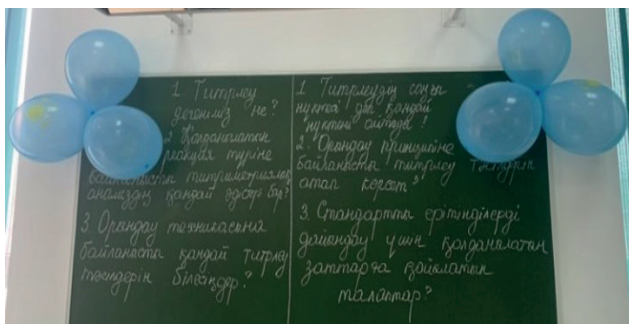 1 Титрлеу
дегеніміз не?
2 Қолданылатын
реакция түріне
байланысты титриметриялық
анализдің қандай әдістері бар?
3. Орындау техникасына
байланысты қандай титрлеу
тәсілдерін білесіңдер?
1 Титрлеудің соңғы
нүктесі деп қандай
нүктені айтады?
2. Орындау принципіне
байланысты титрлеу тәсілдерін
атап көрсет?
3. Стандартты ерітінділерді
дайындау үшін қолданылатын
заттарға қойылатын
талаптар?